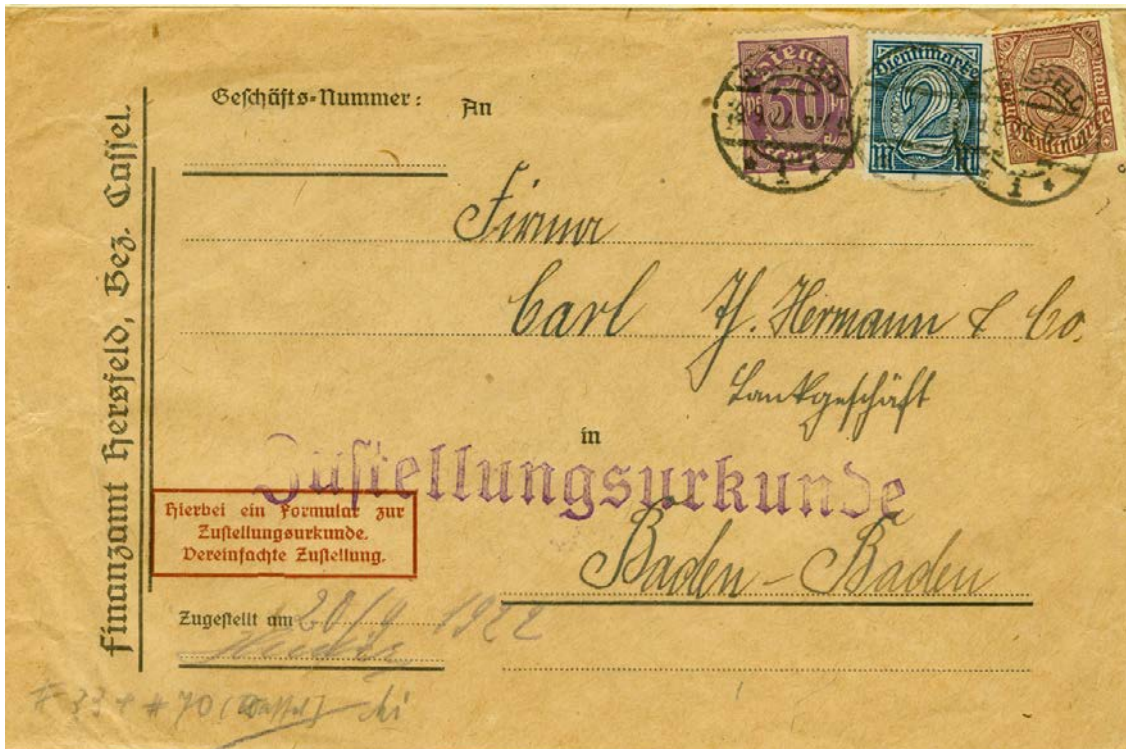 Finanzamt Hersfeld, Bez. Cassel.
Geschäfts-Nummer:
An
50
Pf
Dienstmarke
2
M M
Dienstmarke
1
Firma
Carl Th. Hermann & Co.
Bankgeschäft
in
Zustellungsurkunde
Hierbei ein Formular zur
Zustellungsurkunde.
Vereinfachte Zustellung.
Baden-Baden
Zugestellt am 20/4 1922
# 33 + # 70 (Cassel)